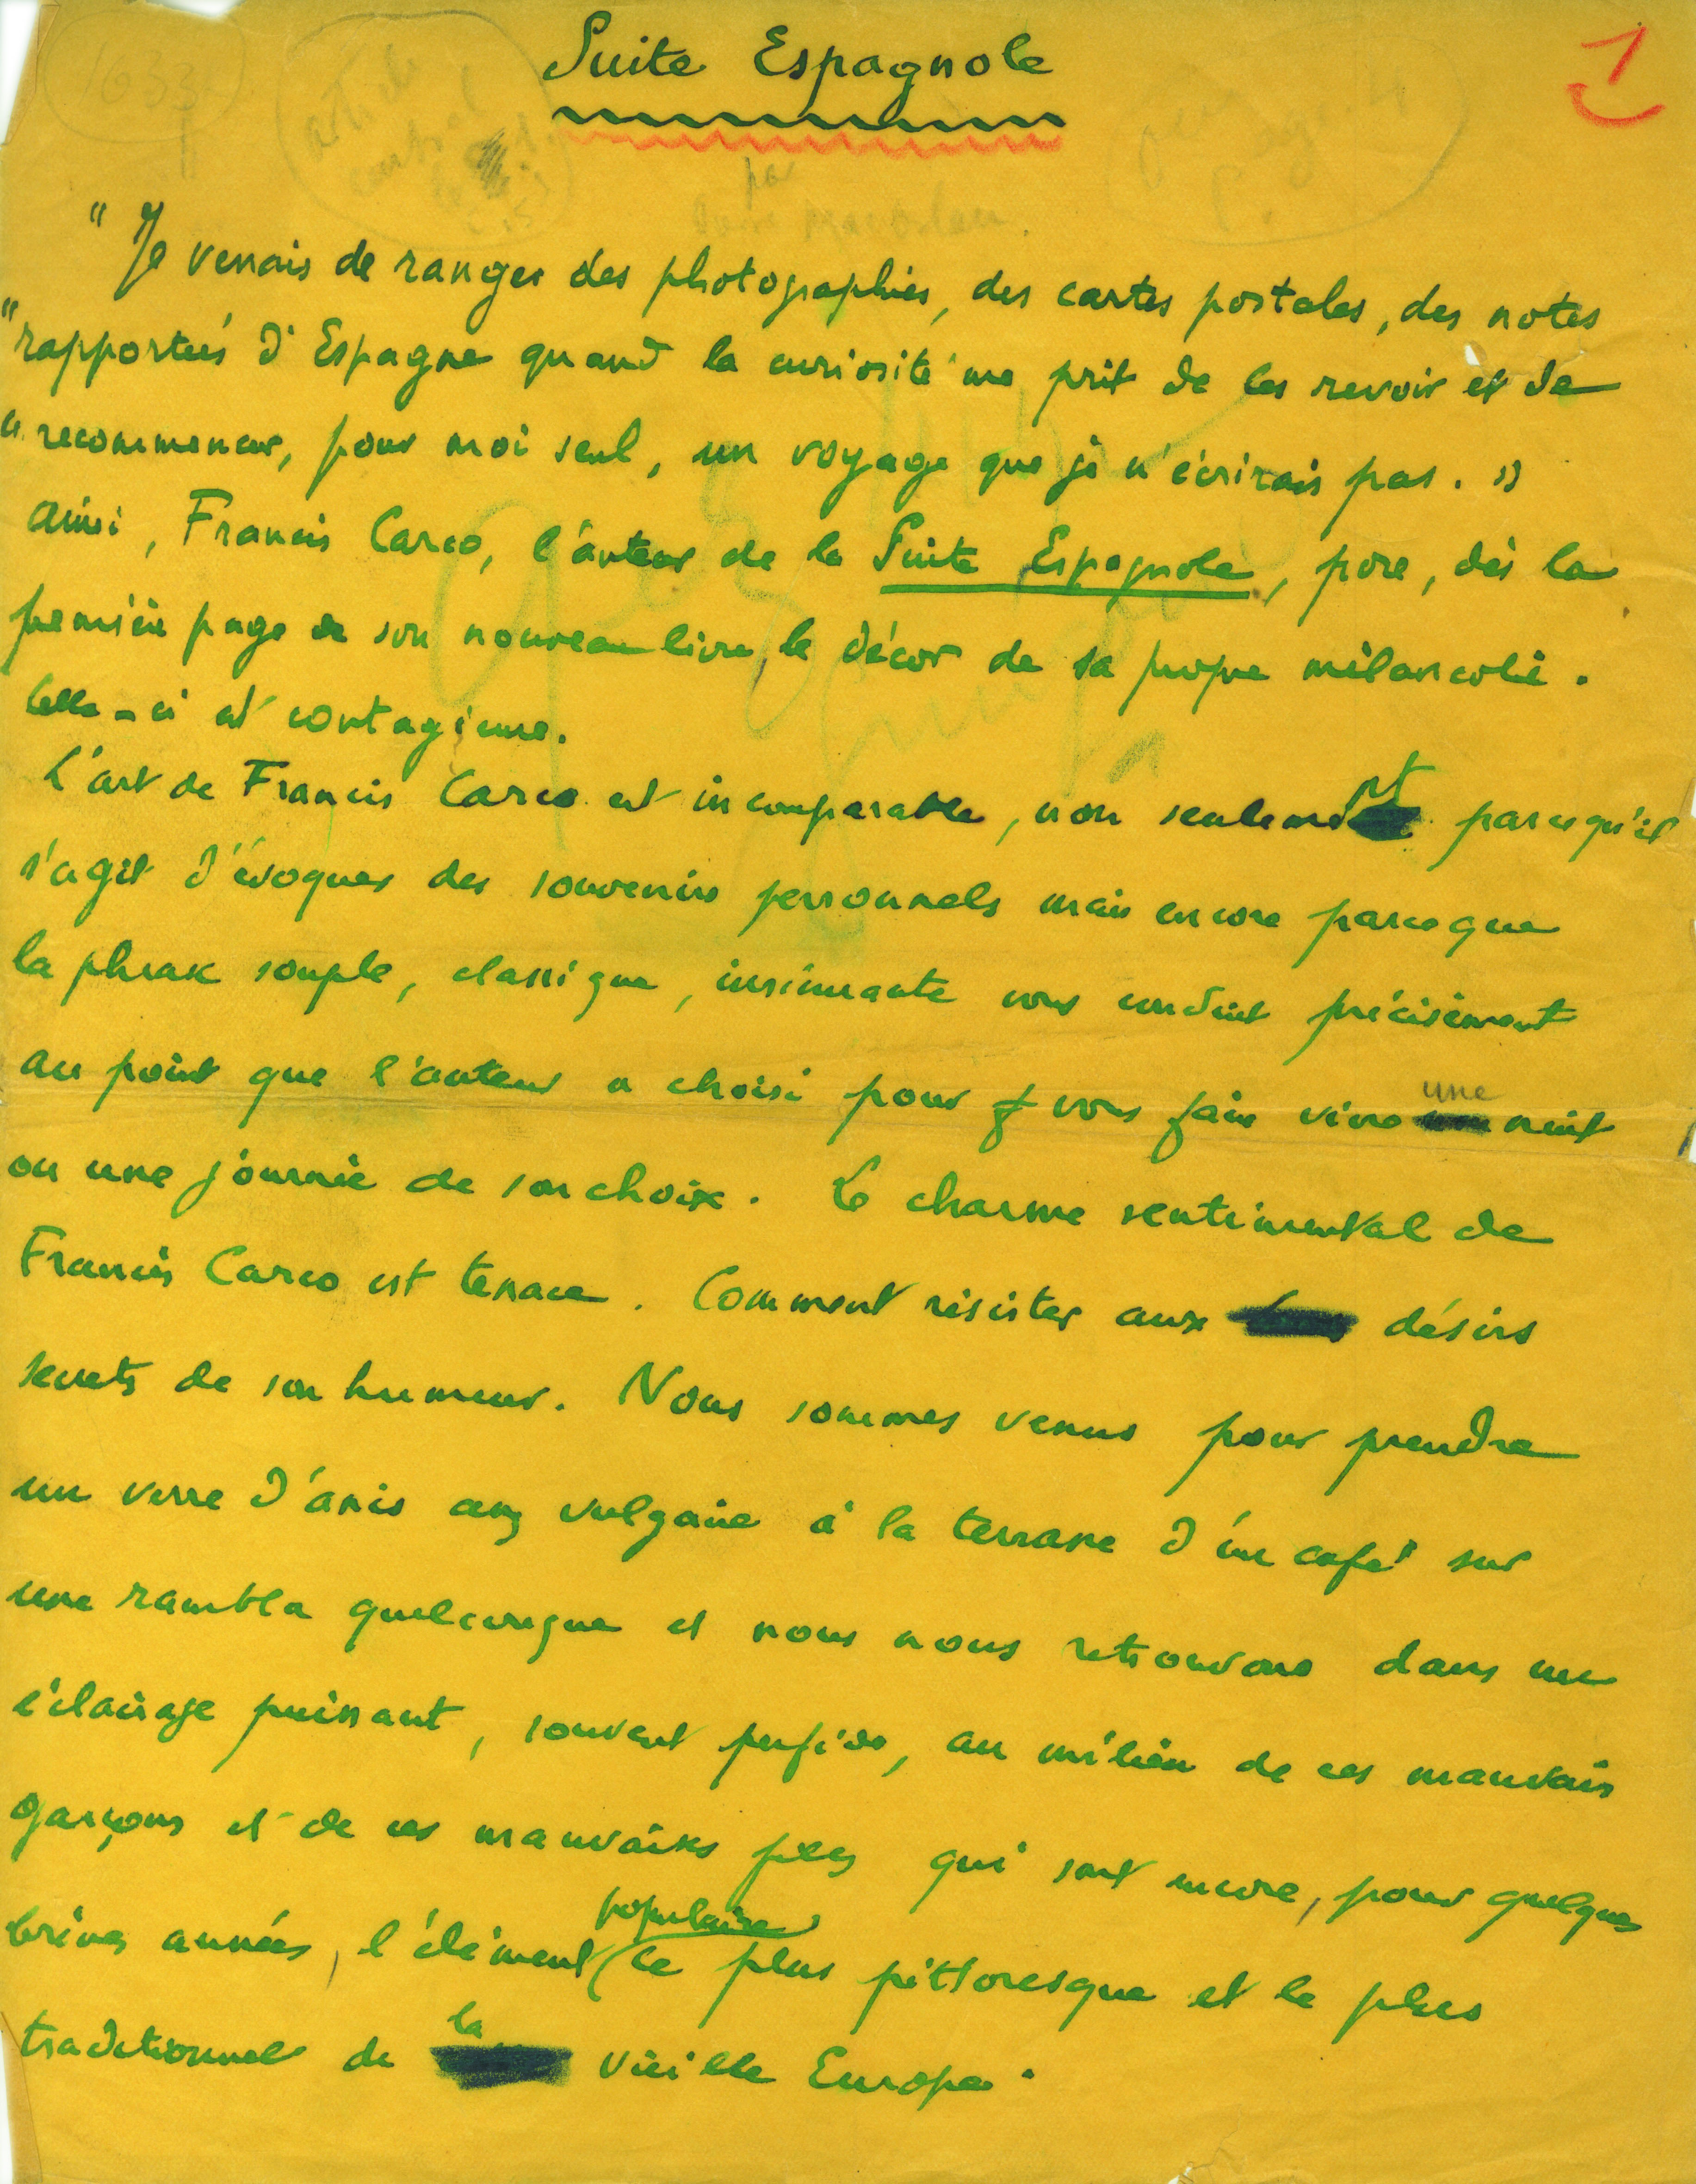 Suite Espagnole
1
1633
par
" Je venais de ranger des photographies, des cartes postales, des notes
" rapportées d'Espagne quand la curiosité me prit de les revoir et de
" recommencer, pour moi seul, un voyage que je n'écrirais pas. "
Ainsi, Francis Carco, l'auteur de la Suite Espagnole, pose, dès la
première page de son nouveau livre, le décor de sa propre mélancolie.
Celle-ci est contagieuse.
L'art de Francis Carco est incomparable, non seulement parcequ'il
s'agit d'évoquer des souvenirs personnels mais encore parce que
la phrase souple, classique, insinuante vous conduit précisément
au point que l'auteur a choisi pour vous faire vivre une nuit
ou une journée de son choix. Le charme sentimental de
Francis Carco est tenace. Comment résister aux désirs
secrets de son humeur. Nous sommes venus pour prendre
un verre d'anis assez vulgaire à la terrasse d'un café sur
une rambla quelconque et nous nous retrouvons dans un
éclairage puissant, souvent perfide, au milieu de ces mauvais
garçons et de ces mauvaises filles qui sont encore, pour quelques
brèves années, l'élément populaire le plus pittoresque et le plus
traditionnel de la vieille Europe.